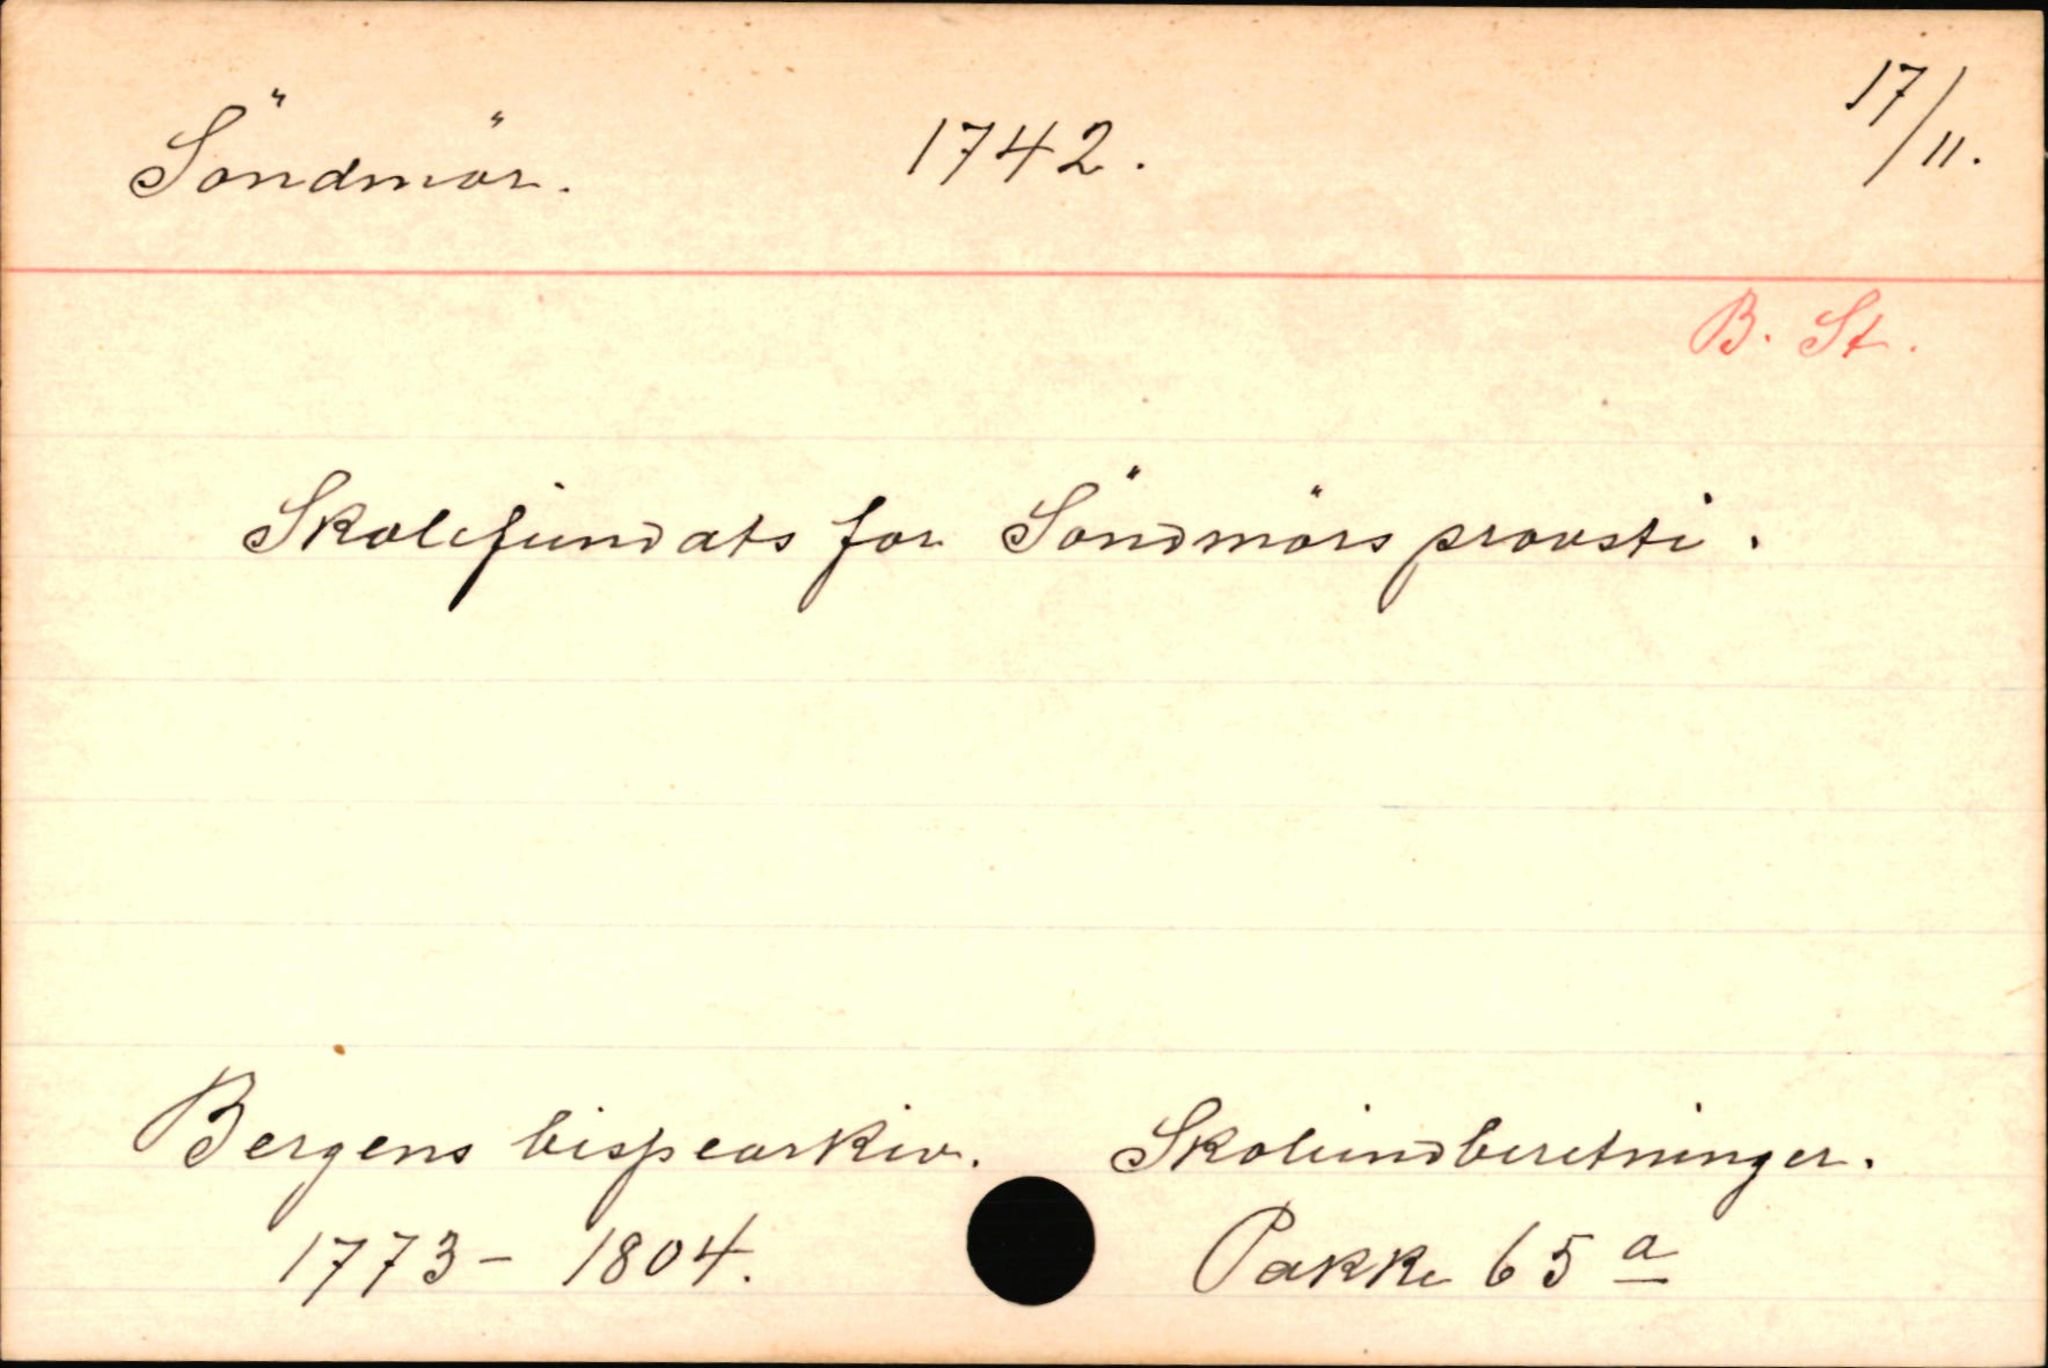 Söndmör. 1742. 17/11.
B. St.
Skolefundats for Söndmörs provsti.
Bergens bispearkiv. Skoleindberetninger.
1773-1804. Pakke 65 a